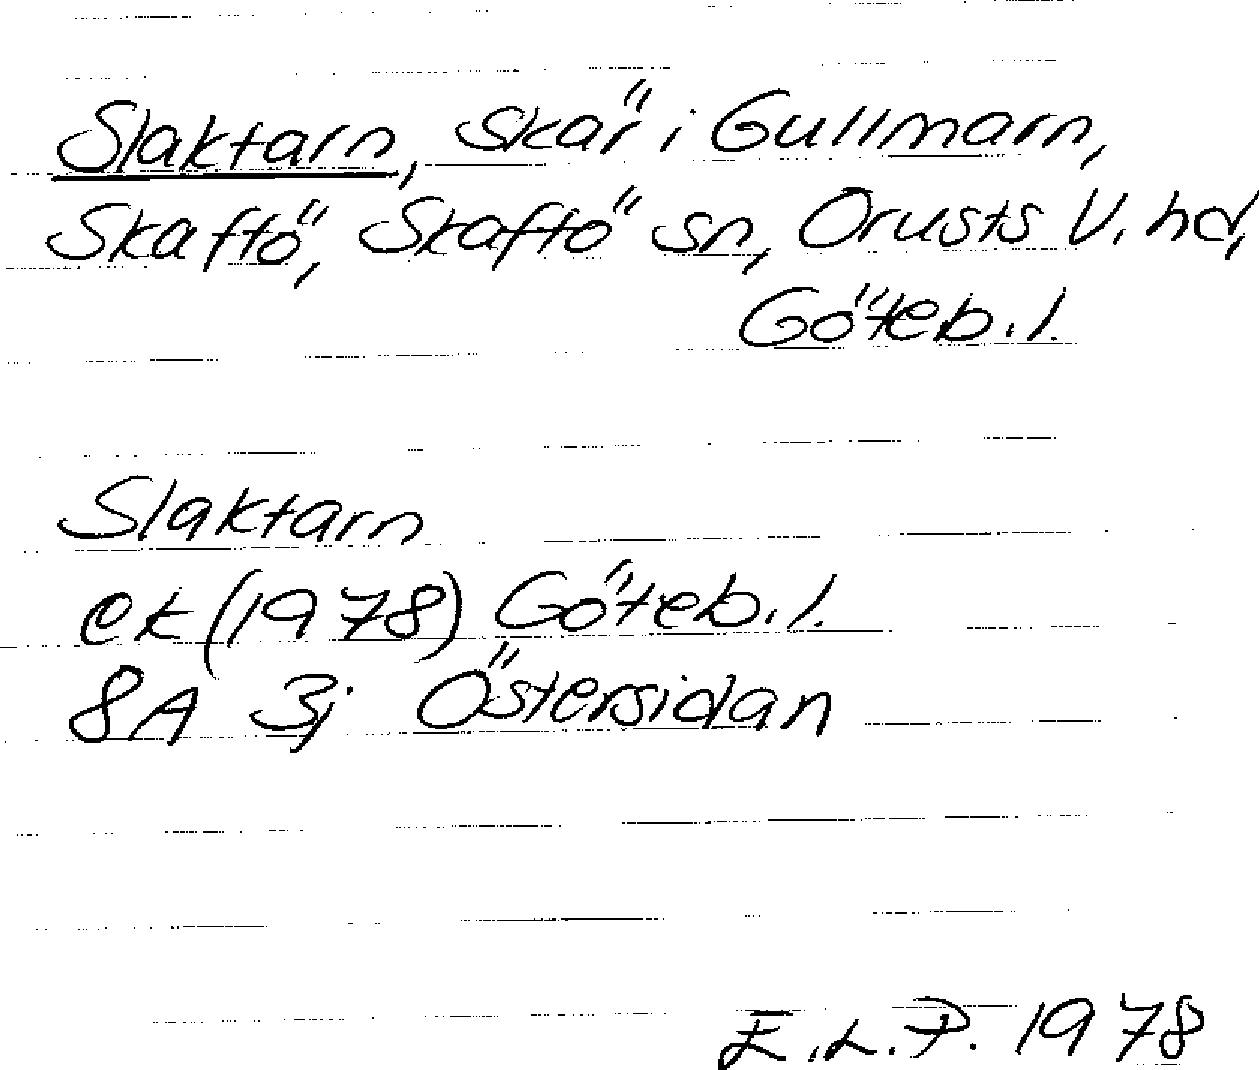 Slaktarn, skär i Gullmarn,
Skaftö, Skaftö sn, Orusts V. hd,
Göteb. l.
Slaktarn
ek (1978) Göteb. l.
8A 3j Östersidan
E.L.P. 1978